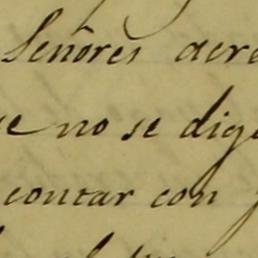 Señores acre
se no se dig
contar con